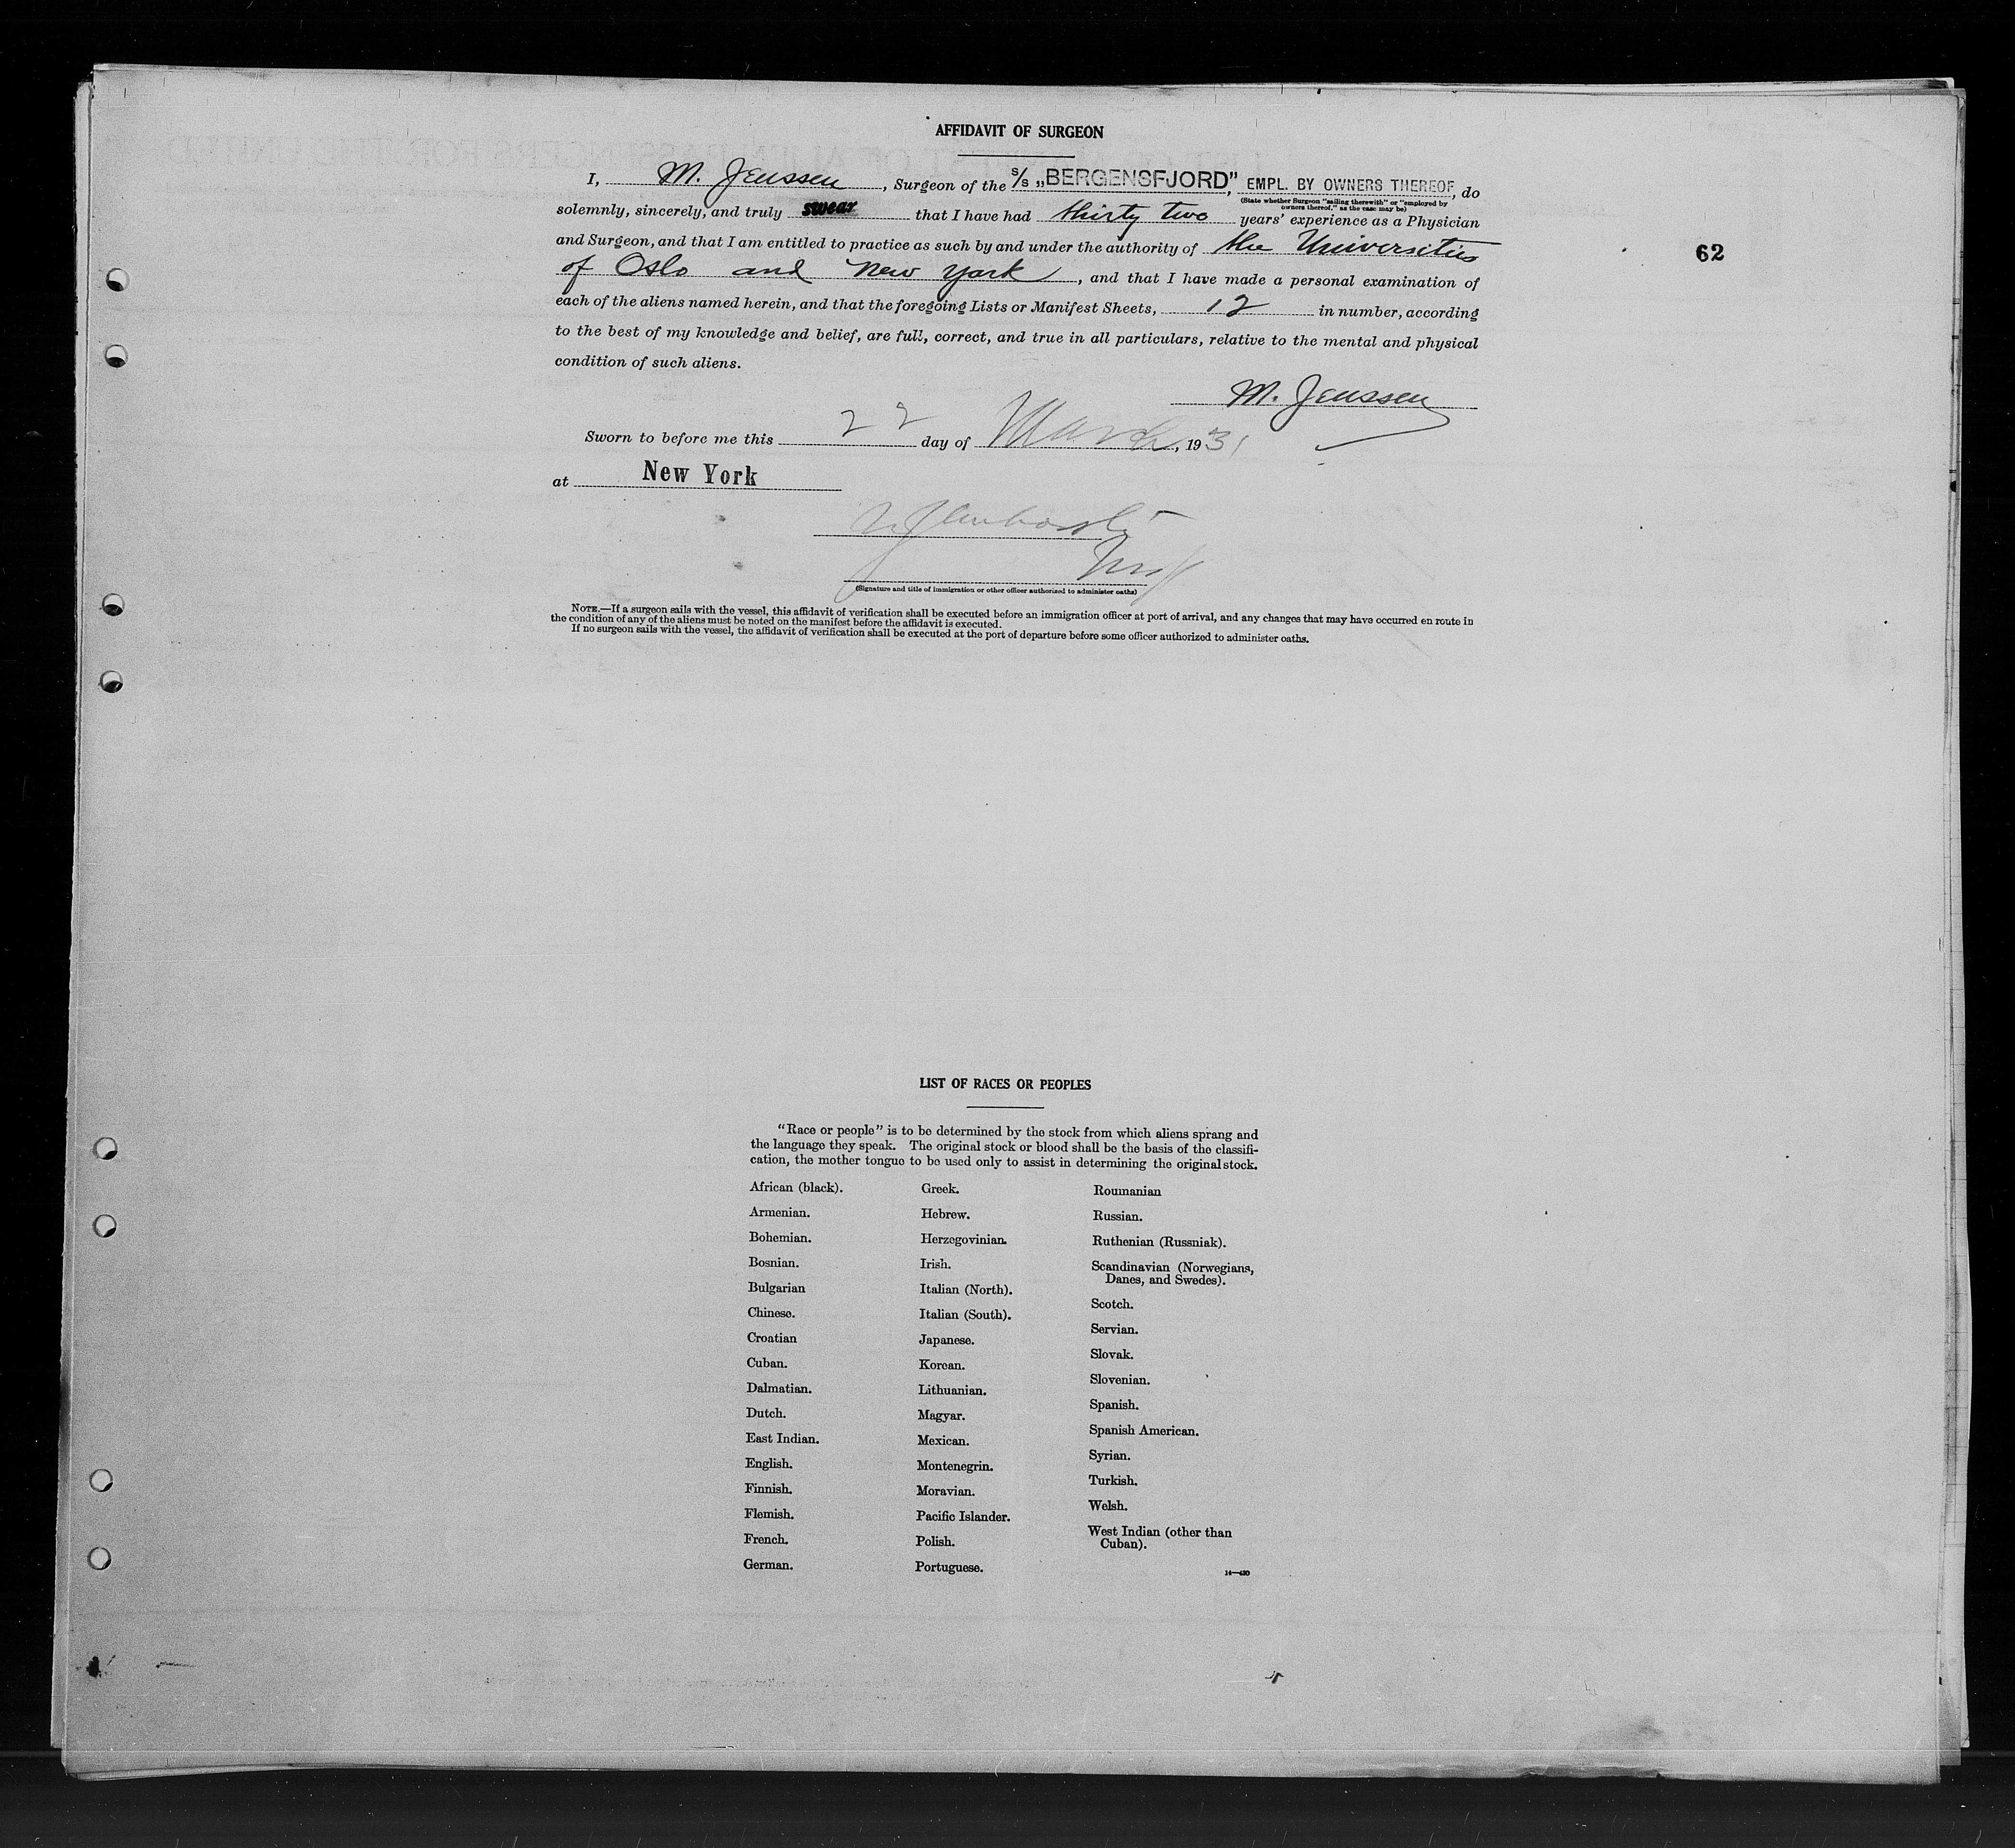 AFFIDAVIT OF SURGEON
I, M. Jenssen, Surgeon of the S/S „BERGENSFJORD," EMPL. BY OWNERS THEREOF, do
(State whether Surgeon "sailing therewith" or "employed by
owners thereof," as the case may be)
solemnly, sincerely, and truly swear that I have had thirty two years' experience as a Physician
and Surgeon, and that I am entitled to practice as such by and under the authority of the Universities
62
of Oslo and New York, and that I have made a personal examination of
each of the aliens named herein, and that the foregoing Lists or Manifest Sheets, 12 in number, according
to the best of my knowledge and belief, are full, correct, and true in all particulars, relative to the mental and physical
condition of such aliens.
M. Jenssen
Sworn to before me this 22 day of March, 1931
at New York
(Signature and title of immigration or other officer authorized to administer oaths)
NOTE.—If a surgeon sails with the vessel, this affidavit of verification shall be executed before an immigration officer at port of arrival, and any changes that may have occurred en route in
the condition of any of the aliens must be noted on the manifest before the affidavit is executed.
If no surgeon sails with the vessel, the affidavit of verification shall be executed at the port of departure before some officer authorized to administer oaths.
LIST OF RACES OR PEOPLES
"Race or people" is to be determined by the stock from which aliens sprang and
the language they speak. The original stock or blood shall be the basis of the classifi-
cation, the mother tongue to be used only to assist in determining the original stock.
African (black).
Armenian.
Bohemian.
Bosnian.
Bulgarian
Chinese.
Croatian
Cuban.
Dalmatian.
Dutch.
East Indian.
English.
Finnish.
Flemish.
French.
German.
Greek.
Hebrew.
Herzegovinian.
Irish.
Italian (North).
Italian (South).
Japanese.
Korean.
Lithuanian.
Magyar.
Mexican.
Montenegrin.
Moravian.
Pacific Islander.
Polish.
Portuguese.
Roumanian
Russian.
Ruthenian (Russniak).
Scandinavian (Norwegians,
Danes, and Swedes).
Scotch.
Servian.
Slovak.
Slovenian.
Spanish.
Spanish American.
Syrian.
Turkish.
Welsh.
West Indian (other than
Cuban).
14—430